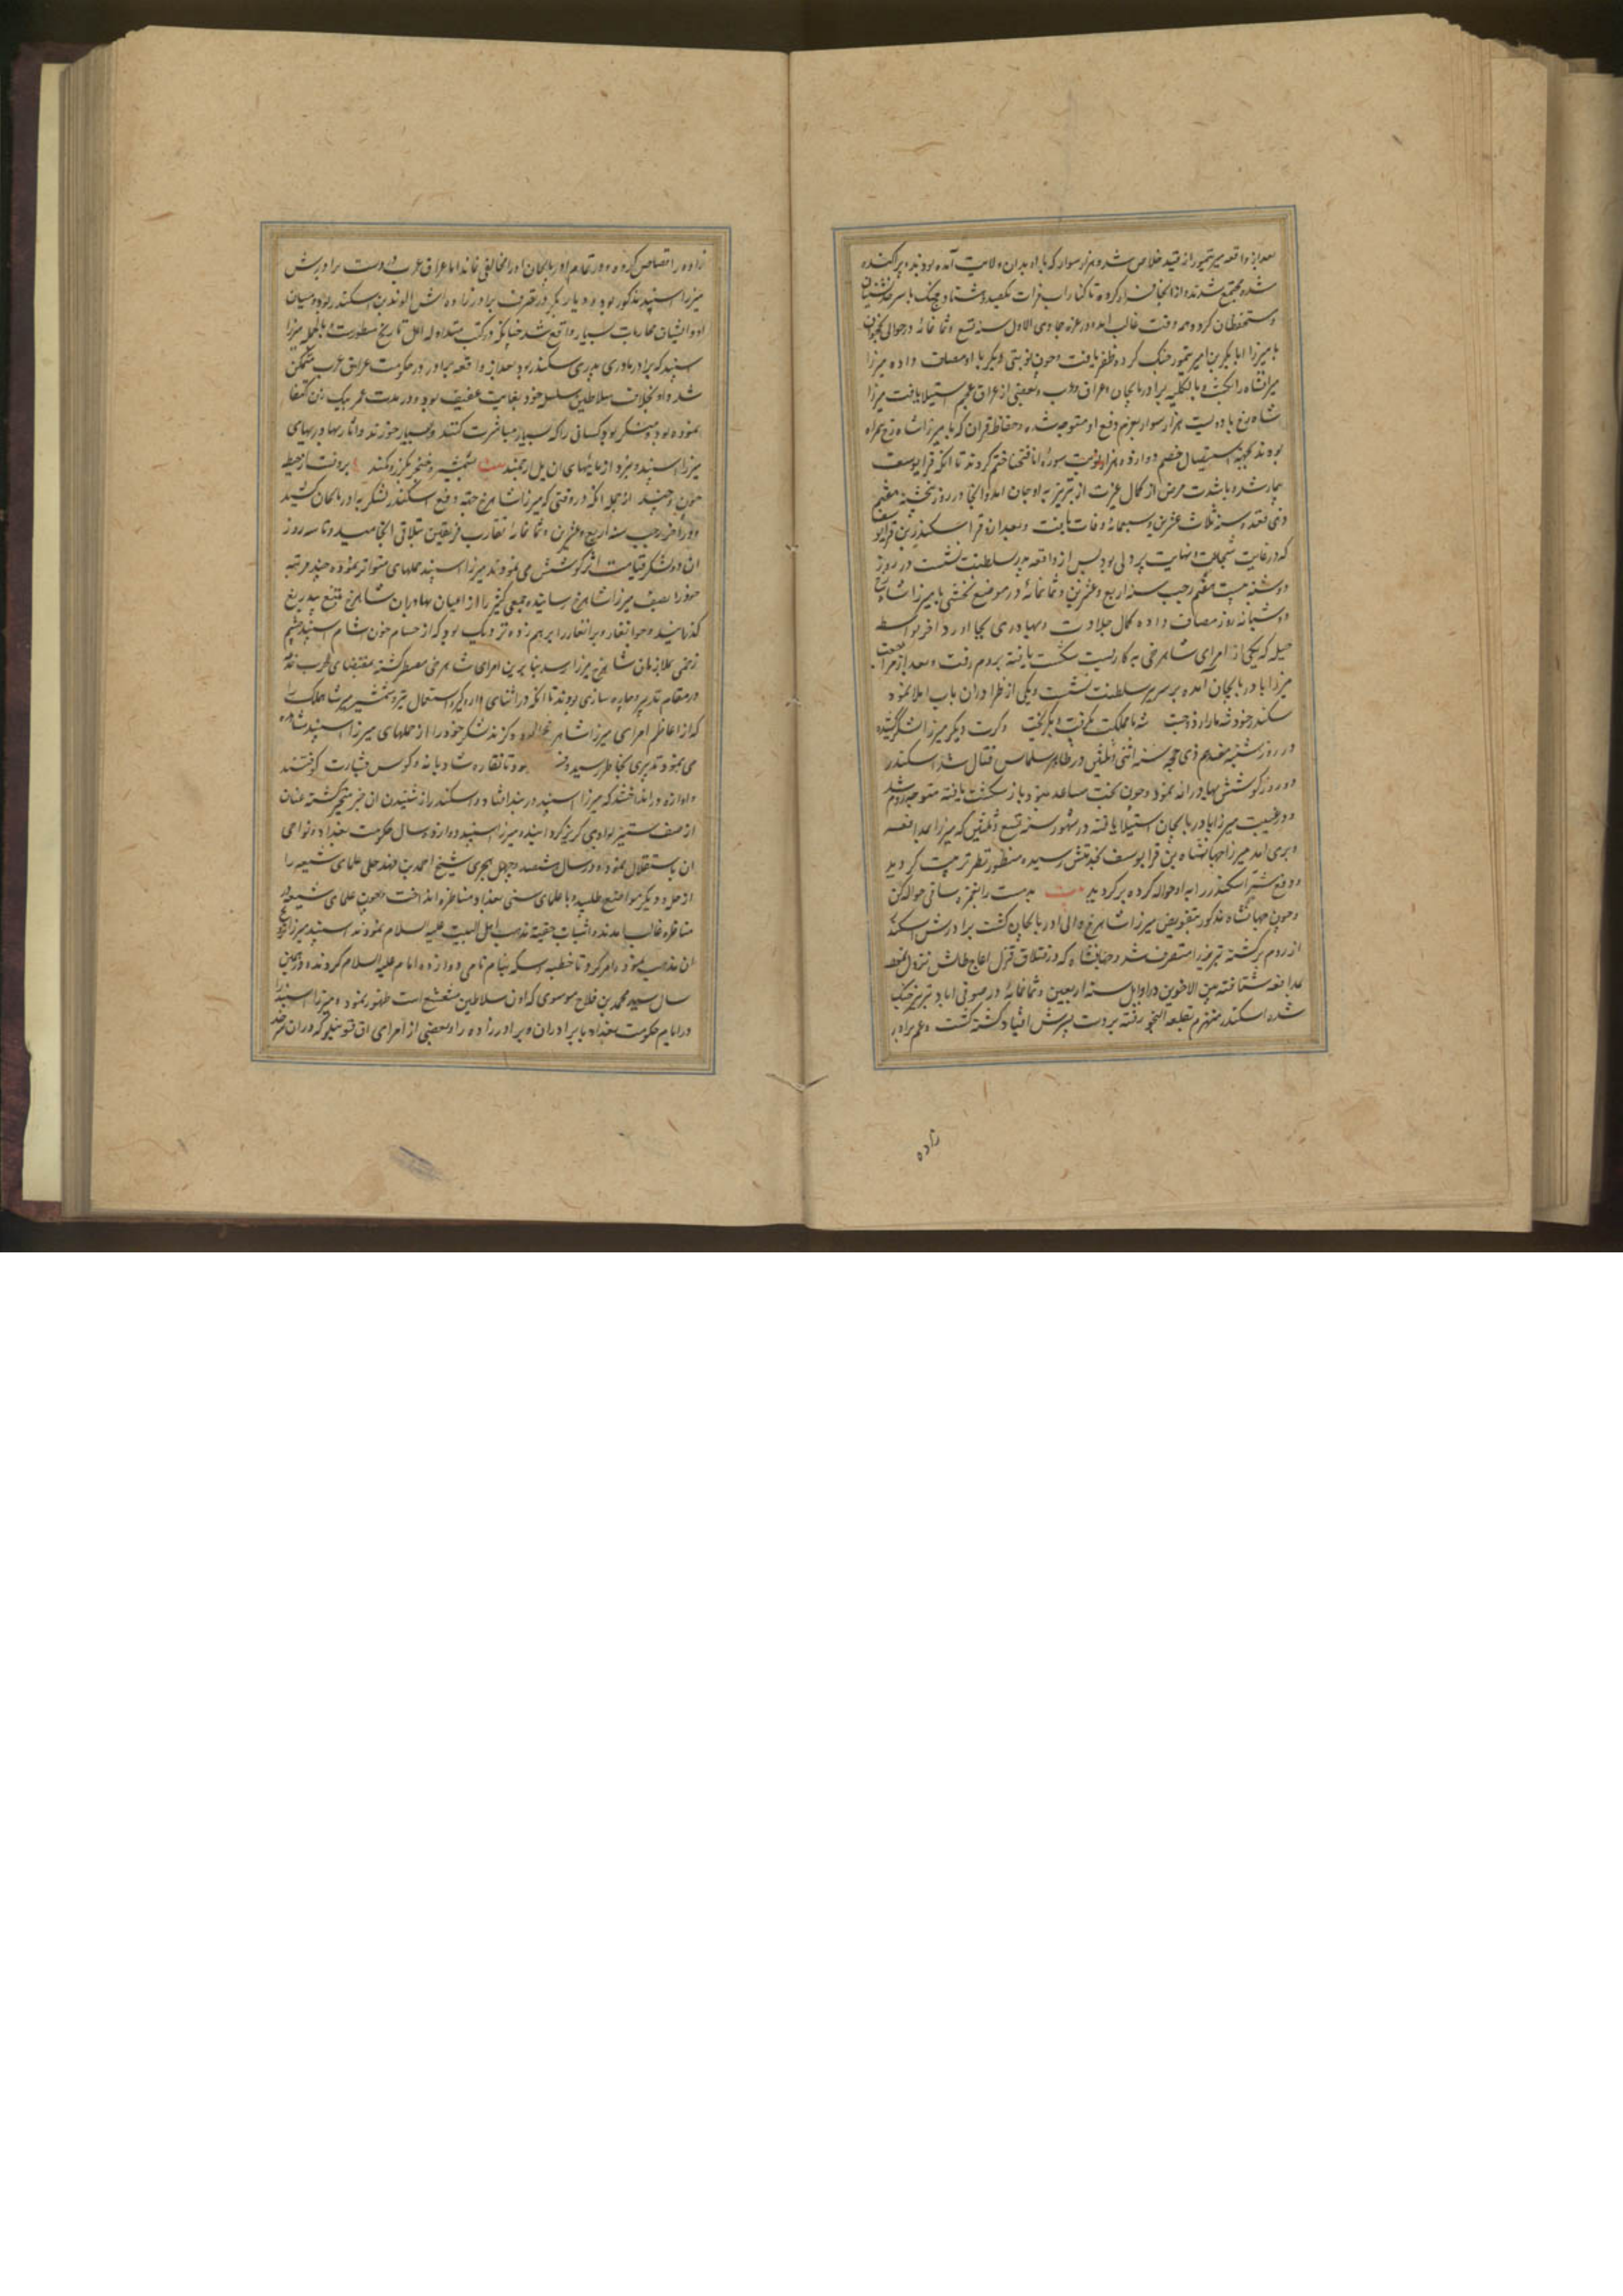 بعد از واقعه میر تیمور از قید خلاص شد و هزار سوار که با او بدان ولایت آمده بودند و پراکنده
شده مجتمع شدند و از آنجا فرار کرده تا کنار آب فرات رسید و هشتاد جنگ با سرحدنشینان
و مستحفظان کرده همه وقت غالب آمد و در غره جمادی الاول سنه تسع و ثمانمائه در حوالی نخجوان
با میرزا ابابکر بن امیر تیمور جنگ کرده ظفر یافت و چون نوبتی دیگر با او مصاف داده میرزا
میرانشاه را بکشت و بالکلیه بر آذربایجان و عراق عرب و بعضی از عراق عجم استیلا یافت میرزا
شاهرخ با دویست هزار سوار بعزم دفع او متوجه شده و حفاظ قرآن که با میرزا شاهرخ همراه
بودند بجهة استیصال خصم دوازده هزار نوبت سوره انا فتحنا ختم کردند تا آنکه قرا یوسف
بیمار شده با شدت مرض از کمال غیرت از تبریز به اوجان آمد و آنجا در روز پنجشنبه هفتم
ذی قعده سنه ثلاث عشرین و سبعمائه وفات یافت و بعد از او قرا سکندر بن قرا یوسف
که در غایت شجاعت و نهایت پردلی بود پس از واقعه پدر بسلطنت نشست در روز
دوشنبه بیست هفتم رجب سنه اربع و عشرین و ثمانمائه در موضع بخشی با میرزا شاهرخ
دو شبانه روز مصاف داده کمال جلادت و بهادری بجا آورد آخر بواسطه
حیله که یکی از امرای شاهرخی به کار بست شکست یافته بروم رفت و بعد از مراجعت
میرزا باذربایجان آمده بر سریر سلطنت نشست و یکی از ظرفا در آن باب املا نمود
سکندر خود شه ما را زد و جست شه ما مملکت بگرفت و بگریخت و کرت دیگر میرزا لشکر کشیده
در روز شنبه هفدهم ذی حجه سنه اثنی و ثلثین در ظاهر سلماس قتال شد اسکندر
دو روز کوشش بهادرانه نمود و چون بخت مساعد نبود باز شکست یافته متوجه روم شد
و در غیبت میرزا باذربایجان استیلا یافته در شهور سنه تسع و ثلثین که میرزا بمدافعه
و بری آمد میرزا جهانشاه بن قرا یوسف بخدمتش رسیده منظور نظر تربیت گردید
و دفع شر اسکندر را به او حواله کرده برگردید بیت بدمست را بنجر ساقی حواله کن
و چون جهانشاه مذکور بتفویض میرزا شاهرخ والی آذربایجان گشت برادرش اسکندر
از روم برگشته تبریز را متصرف شد و جهانشاه که در قشلاق قزل اغاج طالش نزول نمود
بمدافعه شتافته بین الاخوین در اوایل سنه اربعین و ثمانمائه در صوفی آباد تبریز جنگ
شده اسکندر منهزم بقلعه النجق رفته بردست پسرش قباد کشته گشت و عم برادر
زاده
زاده را قصاص کرده و در تمام آذربایجان او را مخالفی نماند اما عراق عرب در دست برادرش
میرزا اسپند مذکور بود و دیار بکر در تصرف برادرزاده اش الوند بن اسکندر بود و میان
او و ایشان محاربات بسیار واقع شد چنانکه در کتب متداوله اهل تاریخ مسطورست و بالجمله میرزا
اسپند که برادر مادری پدری سکندر بود بعد از واقعه برادر در حکومت عراق عرب متمکن
شد و او بخلاف سلاطین سلسله خود بغایت عفیف بود و در مدت عمر بیک زن اکتفا
نموده بود و منکر بود کسانی را که بسیار مباشرت کنند و بسیار خورند و آثار بهادریهای
میرزا اسپند و نبرد آزمایهای آن یل ارجمند بیت بشمشیر و خنجر بگرز و کمند برونست از حیطه
چون و چند از جمله آنکه در وقتی که میرزا شاهرخ جهة دفع سکندر لشکر به آذربایجان کشید
و در آخر رجب سنه اربع و عشرین و ثمانمائه تقارب فریقین بتلاقی انجامید و تا سه روز
آن دو لشکر قیامت اثر کوشش می نمودند میرزا اسپند حملهای متواتر نموده چند مرتبه
خود را بصف میرزا شاهرخ رسانیده جمعی کثیر را از اعیان بهادران شاهرخ بتیغ بیدریغ
گذرانید و جوانغار و برانغار را برهم زده نزدیک بود که از حسام خون آشام اسپند چشم
زخمی بملازمان شاهرخ میرزا رسد بنابرین امرای شاهرخی مضطر گشته بمقتضای الحرب خدعة
در مقام تدبیر و چاره سازی بودند تا آنکه در اثنای دار و گیر و استعمال تیر و شمشیر میر شاهملک
که از اعاظم امرای میرزا شاهرخ بود و گزند لشکر خود را از حملهای میرزا اسپند مشاهده
می نمود تدبیری بخاطر رسید و فرمود تا نقاره شادیانه و کوس بشارت کوفتند
و آوازه در انداختند که میرزا اسپند در بند افتاد و اسکندر از شنیدن آن خبر متحیر گشته عنان
از صف ستیز بوادی گریز گردانید و میرزا اسپند دوازده سال حکومت بغداد و نواحی
آن باستقلال نمود و در سال هشتصد و چهل هجری شیخ احمد بن فهد حلی علمای شیعه را
از حله و دیگر مواضع طلبید و با علمای سنی بغداد مناظره انداخت و چون علمای شیعه در
مناظره غالب آمدند و اثبات حقیة مذهب اهل البیت علیه السلام نمودند اسپند میرزا
آن مذهب نمود و امر کرد تا خطبه و سکه بنام نامی دوازده امام علیه السلام کردند و در همین
سال سید محمد بن فلاح موسوی که اول سلاطین مشعشع است ظهور نمود و میرزا اسپند را
در ایام حکومت بغداد با برادران و برادرزاده را و بعضی از امرای آق قوینلو که در آن سرحد